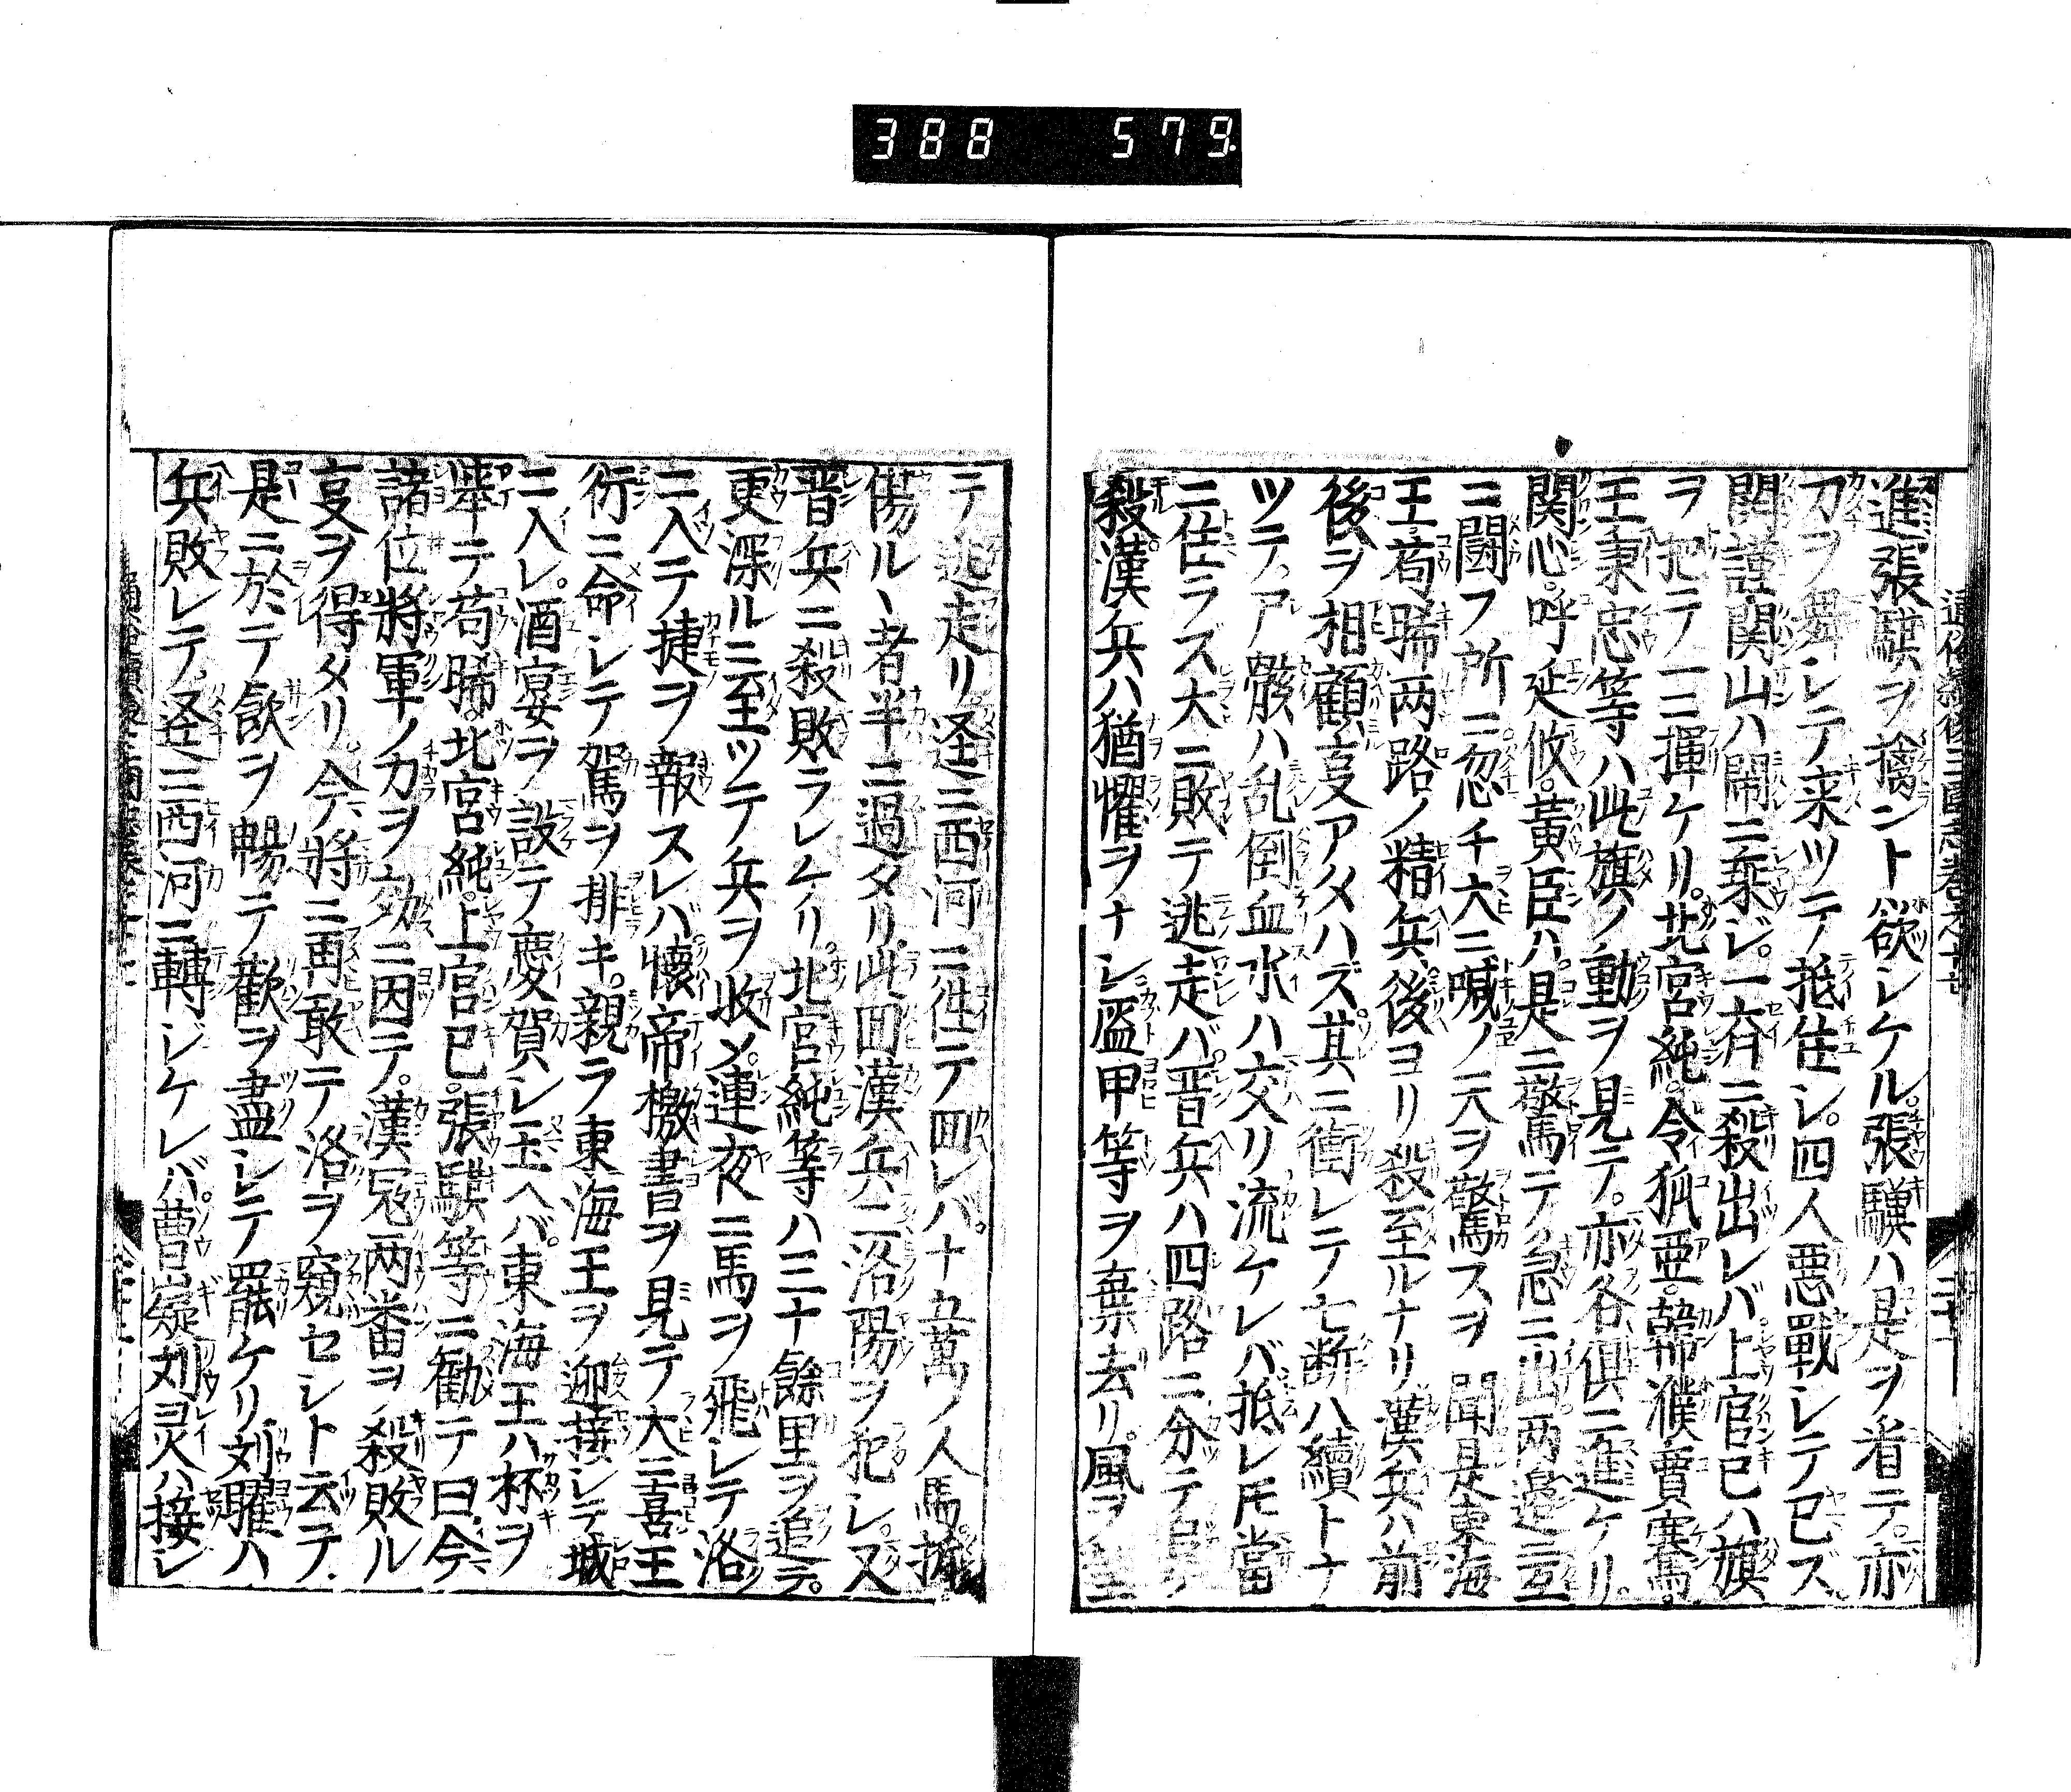 388 579
進張騏ヲ擒ント欲シケル。張騏ハ是ヲ省テ。亦
刀ヲ舞シテ来ツテ抵住シ。四人悪戰シテ已ズ
関謹関山ハ閙ニ乗ジ。一斉ニ殺出レバ。上官巳ハ旗
ヲ把テ一ニ揮ケリ。北宮純。令狐亜。韓濮賈騫。
王秉忠等ハ此旗ノ動ヲ見テ。亦各倶ニ進ケリ。
関心。呼延攸。黄臣ハ。是ニ驚テ急ニ出両邉ニ互
ニ闘フ所ニ忽チ大ニ喊ノ天ヲ驚スヲ聞是東海
王苟晞両路ノ精兵。後ヨリ殺至ルナリ漢兵ハ前
後ヲ相顧亊アメハズ其ニ衝レテ七断八續トナ
ツテ。ア骸ハ乱倒血水ハ交リ流ケレバ抵レ𪜈當
ニ住ラズ大ニ敗テ逃走バ。晋兵ハ四路ニ分テ
殺漢兵ハ猶懼ヲナシ盔甲等ヲ棄去リ。風ヲ
テ逃走リ。逕ニ西河ニ徃テ囬レバ。十五萬ノ人馬
傷ル丶者半ニ過タリ。此囬漢兵二洛陽ヲ犯シ。又
晋兵ニ殺敗ラレケリ。北宮純等ハ三十餘里ヲ追テ。
更深ルニ至ツテ兵ヲ收メ。連夜ニ馬ヲ飛シテ洛
ニ入テ捷ヲ報スレバ。懐帝檄書ヲ見テ大ニ喜王
衍ニ命シテ駕ヲ排キ。親ラ東海王ヲ迎接シテ城
ニ入レ。酒宴ヲ設テ慶賀シ玉ヘバ。東海王ハ杯ヲ
挙テ苟晞。北宮純。上官巳。張騏等ニ勸テ曰。今
諸位將軍ノ力ヲ效ニ因テ。漢冦两番ヲ殺敗ル
亊ヲ得タリ。今將ニ再敢テ洛ヲ窺セシト云テ。
是ニ於テ飲ヲ暢テ歡ヲ盡シテ罷ケリ。刘曜ハ
兵敗レテ。逕ニ西河ニ轉ジケレバ。曹嶷刘灵ハ接シ